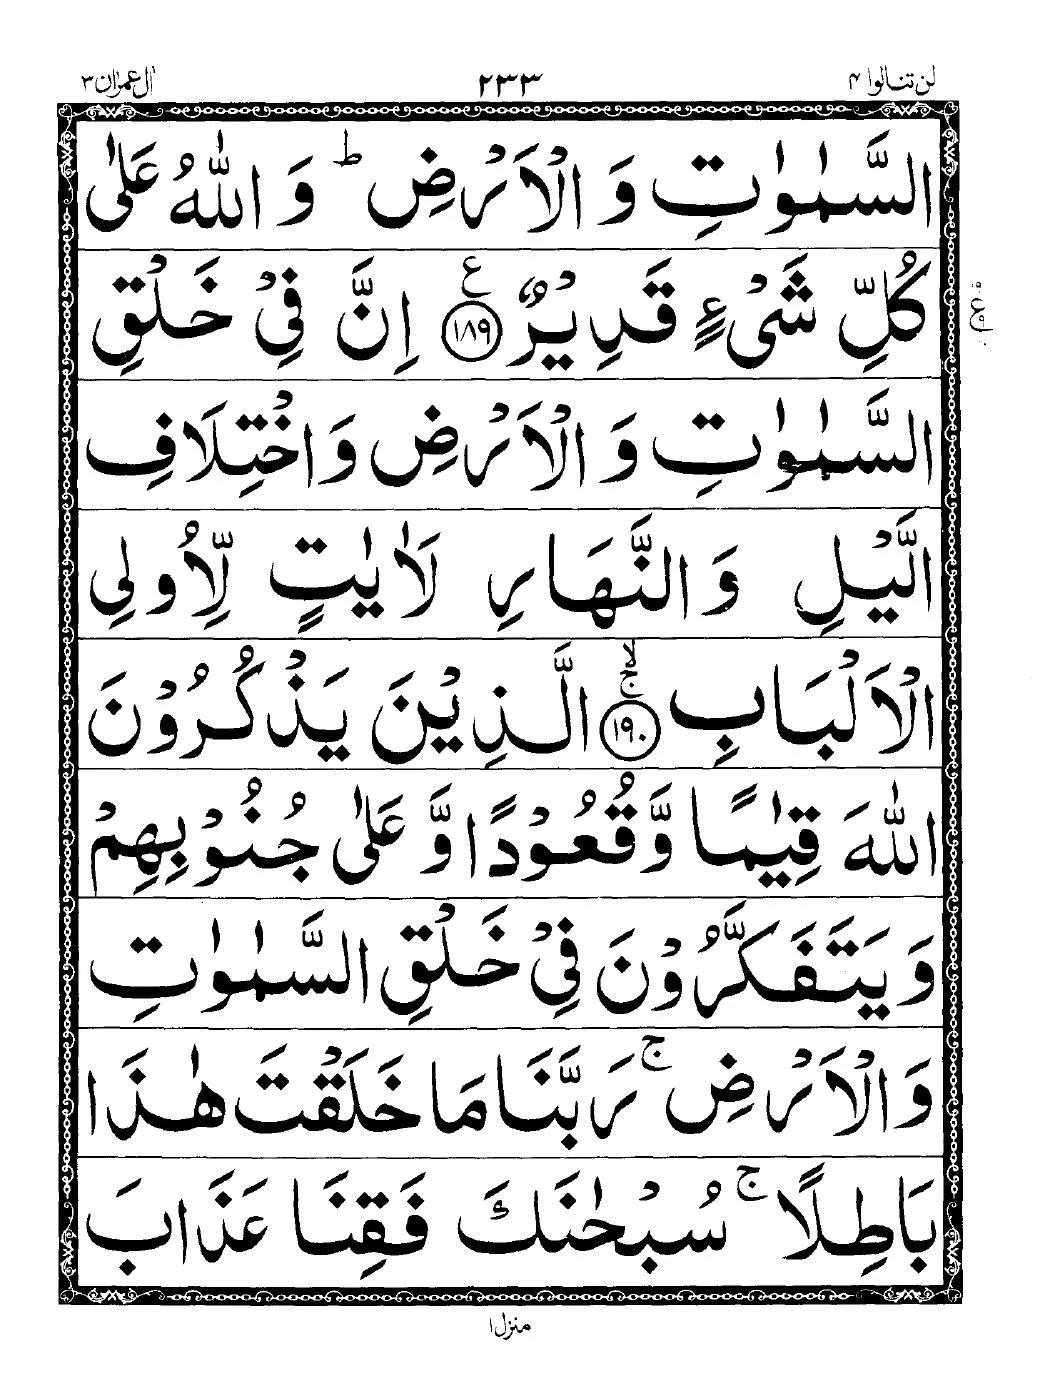 لن تنالوا ۴ ۲۳۳ اٰل عمرٰن ۳
السَّمٰوٰتِ وَ الْاَرْضِ ؕ وَ اللّٰهُ عَلٰى
كُلِّ شَیْءٍ قَدِیْرٌ۠ ﴿۱۸۹﴾ اِنَّ فِیْ خَلْقِ
السَّمٰوٰتِ وَ الْاَرْضِ وَ اخْتِلَافِ
الَّیْلِ وَ النَّهَارِ لَاٰیٰتٍ لِّاُولِی
الْاَلْبَابِ ﴿۱۹۰﴾ۚۙ الَّذِیْنَ یَذْكُرُوْنَ
اللّٰهَ قِیٰمًا وَّ قُعُوْدًا وَّ عَلٰى جُنُوْبِهِمْ
وَ یَتَفَكَّرُوْنَ فِیْ خَلْقِ السَّمٰوٰتِ
وَ الْاَرْضِ ۚ رَبَّنَا مَا خَلَقْتَ هٰذَا
بَاطِلًا ۚ سُبْحٰنَكَ فَقِنَا عَذَابَ
منزل ۱